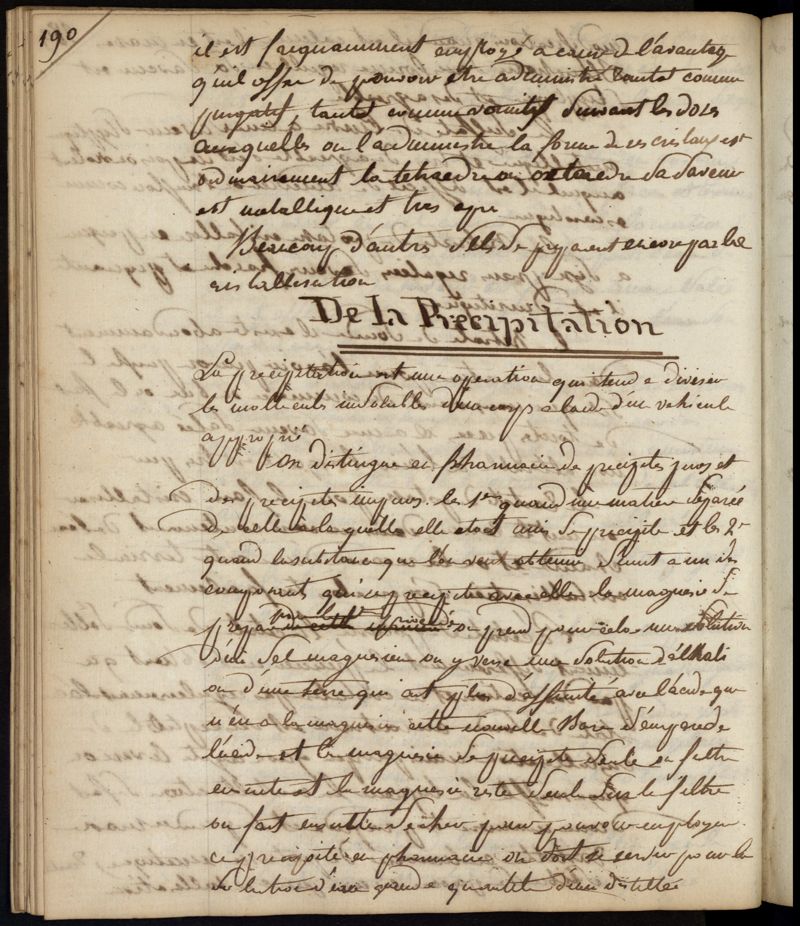 190
il est frequamment employé a cause de l'avantage
qu'il offre de pouvoir etre administré tantot comme
purgatif, tantot comme vomitif suivant les doses
auxquelles on l'administre la forme de ses cristaux est
ordinairement le tetraedre ou octaedre sa saveur
est metallique et tres apre
Beaucoup d'autres sels se preparent encore par la
cristallisation
De la Précipitation
La precipitation est une operation qui tend a diviser
les molecules insolubles d'un corps a l'aide d'un vehicule
approprié
On distingue en pharmacie des precipités purs et
des precipités impurs. les 1ers quand une matiere separée
de celle a la quelle elle etoit unie se precipite et les 2e
quand la substance que l'on veut obtenir s'unit a un des
composants qui se precipite avec elle la magnesie se
prepare par le 1er procédé on prend pour cela une solution
d'un sel magnesien on y verse une solution d'alkali
ou d'une terre qui ait plus d'affinité avec l'acide que
n'en a la magnesie cette nouvelle Base s'empare de
l'acide et la magnesie se precipite seule on filtre
ensuite et la magnesie reste seule sur le filtre
on fait ensuite secher pour pouvoir employer
ce precipité en pharmacie on doit se servir pour la
solution d'une grande quantité d'eau distillée